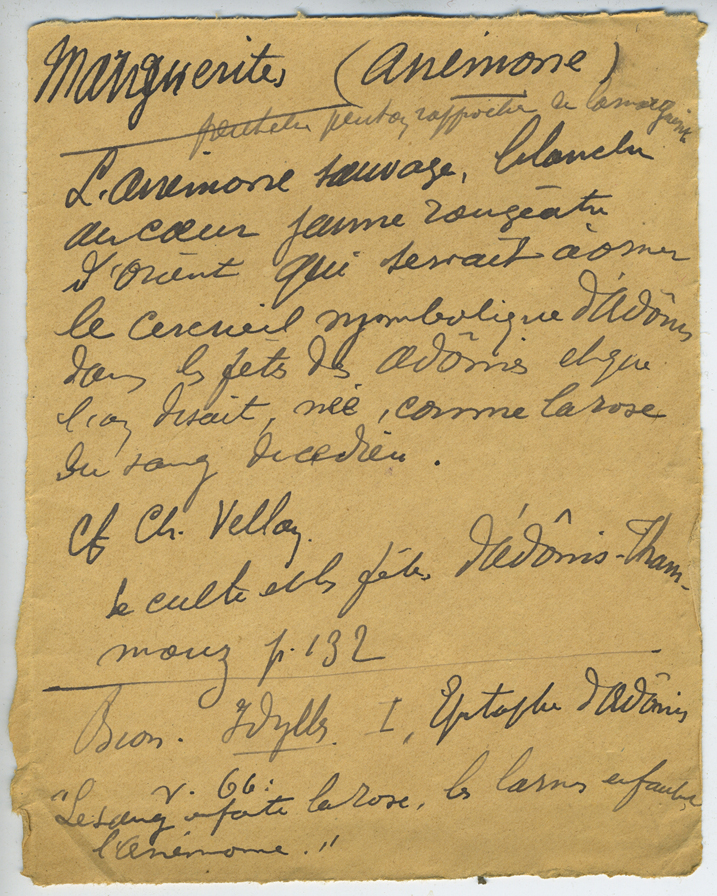 Marguerites (Anémone)
peut-être peut on rapprocher de la marguerite
L'anémone sauvage, blanche
au cœur jaune rougeâtre
d'Orient qui servait à orner
le cercueil symbolique d'Adônis
dans les fêtes des Adônies et que
l'on disait, née, comme la rose
du sang de ce dieu.
Cf Ch. Vellay.
Le culte et les fêtes d'Adônis-Tham-
mouz p. 132
Bion. Idylles I, Epitaphe d'Adônis
v. 66:
"Le sang enfante la rose, les larmes enfantent
l'anémome."